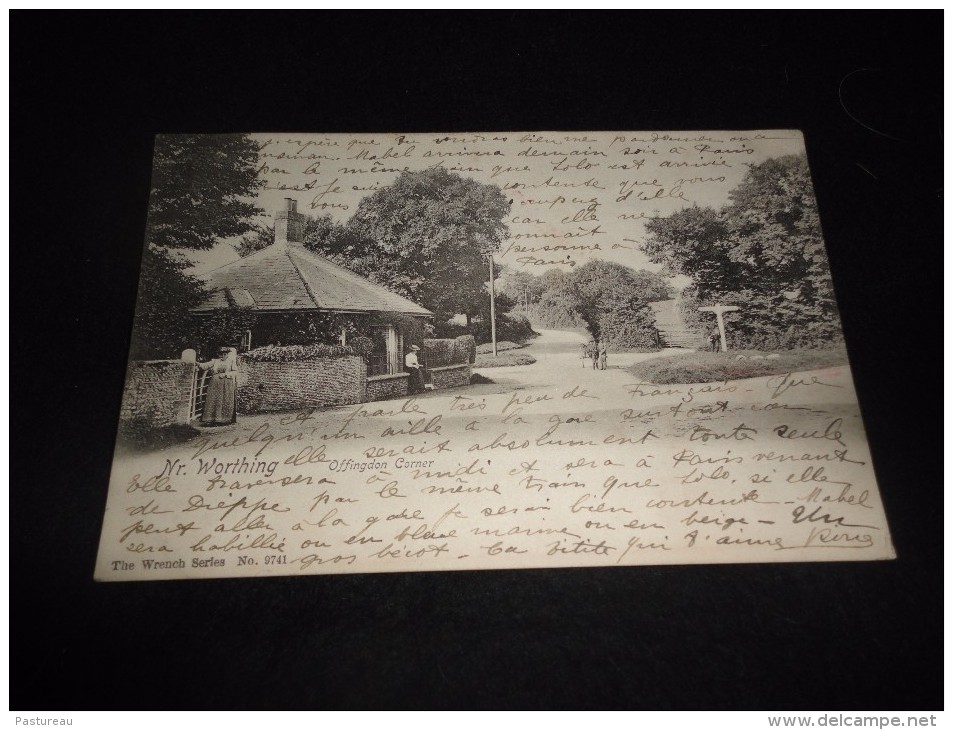 j'espère que tu voudras bien me pardonner ma
maman. Mabel arrivera demain soir à Paris
par le même train que Lolo est arrivée
c'est je suis contente que vous
vous occupez d'elle
car elle ne
connait
personne à
Paris
et parle très peu de Français. Que
quelqu'un aille à la gare surtout car
elle serait absolument toute seule
Nr. Worthing
Offingdon Corner
Elle traversera à midi et sera à Paris venant
de Dieppe par le même train que Lolo. si elle
peut aller à la gare je serai bien contente. Mabel
sera habillée ou en bleu marine ou en beige. Un
gros bécot. Ta petite qui t'aime
The Wrench Series No. 9741
Pastureau
www.delcampe.net